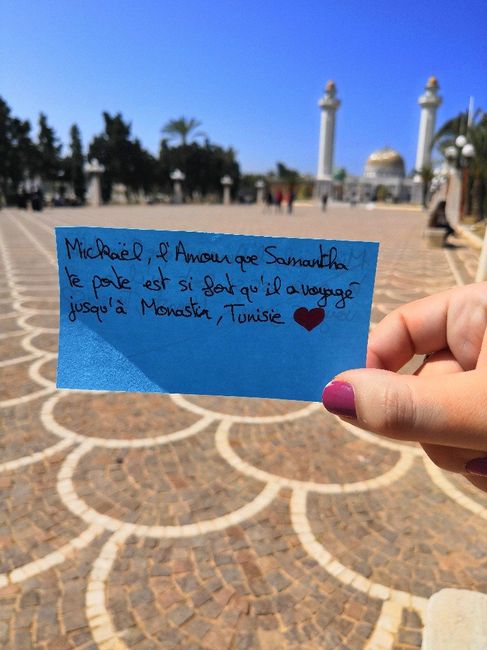 Mickaël, l'Amour que Samantha
te porte est si fort qu'il a voyagé
jusqu'à Monastir, Tunisie ♥